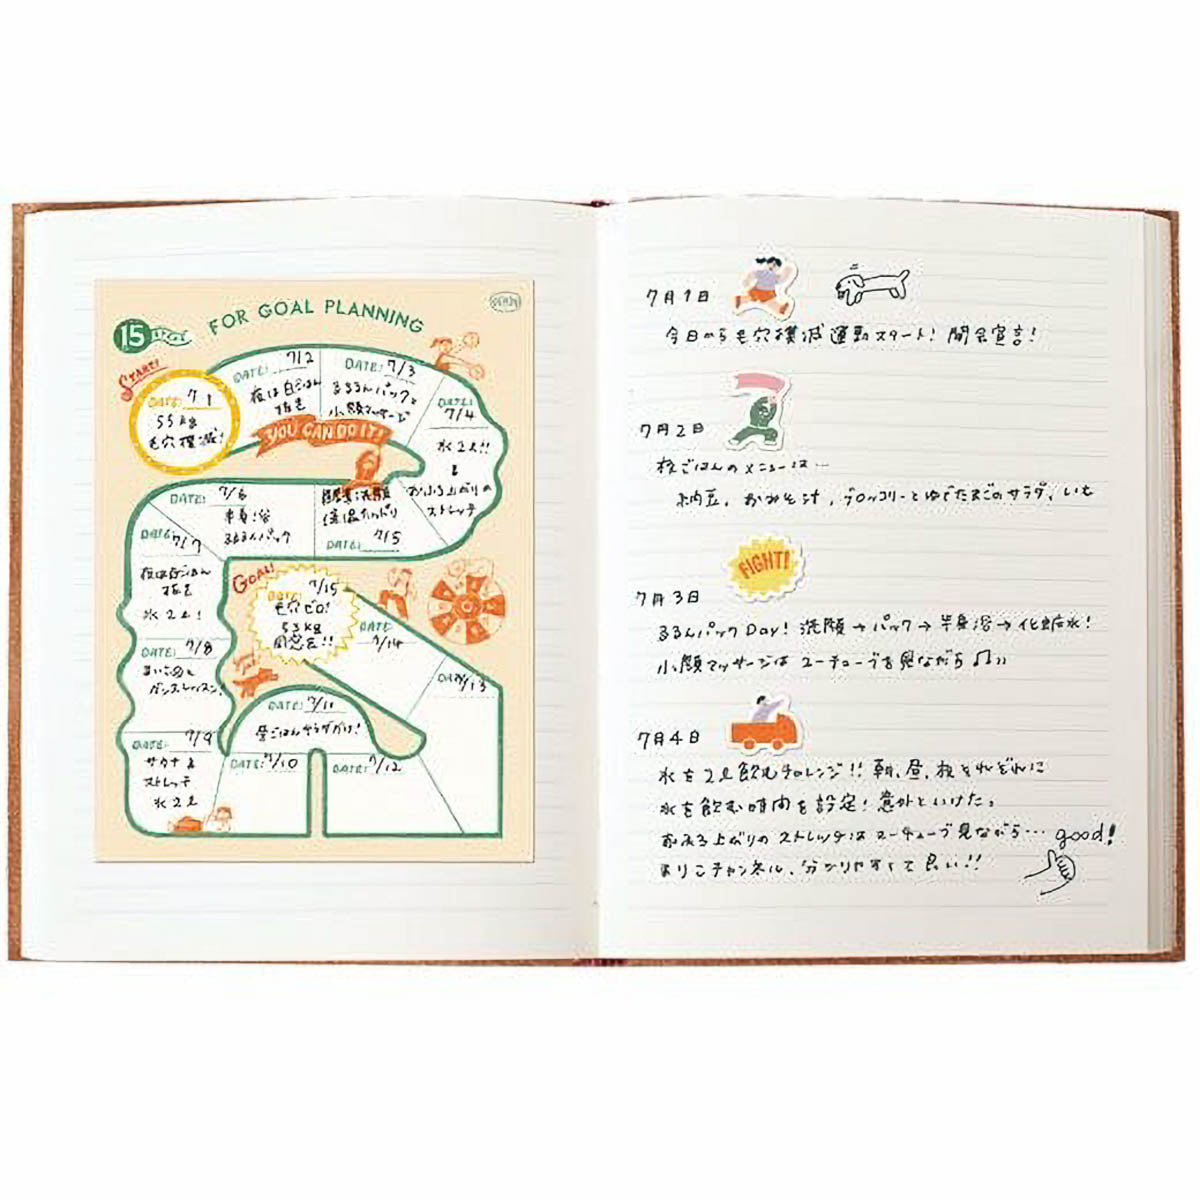 FOR GOAL PLANNING
15
START!
DATE: 7/1
55kg
毛穴撲滅!
DATE: 7/2
夜は白ごはん
抜き
DATE: 7/3
るるるんパックと
小顔マッサージ
DATE:
7/4
水2ℓ!!
&
おふろ上がりの
ストレッチ
YOU CAN DO IT!
DATE: 7/5
DATE: 7/6
半身浴
るるるんパック
DATE: 7/7
夜は白ごはん
抜き
水2ℓ!
DATE: 7/8
DATE: 7/9
サウナ&
ストレッチ
水2ℓ
DATE: 7/10
DATE: 7/11
昼ごはんサラダだけ!
DATE: 7/12
DATE: 7/13
DATE:
7/14
GOAL!
DATE: 7/15
毛穴ゼロ!
53kg
同窓会!!
7月1日
今日から毛穴撲滅運動スタート! 開会宣言!
7月2日
夜ごはんのメニューは…
納豆、おみそ汁、ブロッコリーとゆでたまごのサラダ、いも
FIGHT!
7月3日
るるるんパックDay! 洗顔→パック→半身浴→化粧水!
小顔マッサージは ユーチューブを見ながら♫〃
7月4日
水を2ℓ飲むチャレンジ!! 朝、昼、夜それぞれに
水を飲む時間を設定! 意外といけた。
おふろ上がりのストレッチはユーチューブ見ながら… good!
まりこチャンネル、分かりやすくて良い!!